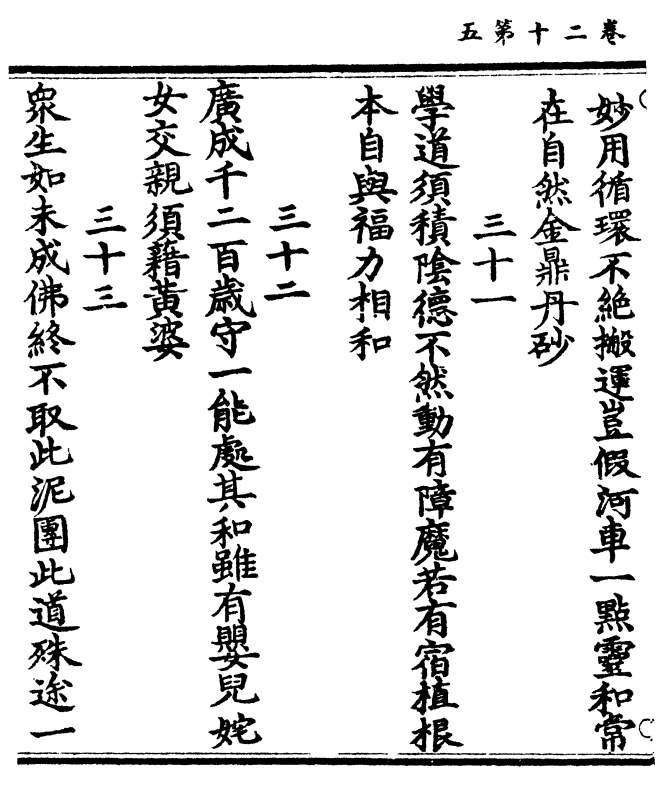 卷二十第五
妙用循環不絶搬運豈假河車一點靈和常
在自然金鼎丹砂
三十一
學道須積陰德不然動有障魔若有宿植根
本自與福力相和
三十二
廣成千二百歲守一能處其和雖有嬰兒姹
女交親須藉黃婆
三十三
衆生如未成佛終不取此泥團此道殊途一